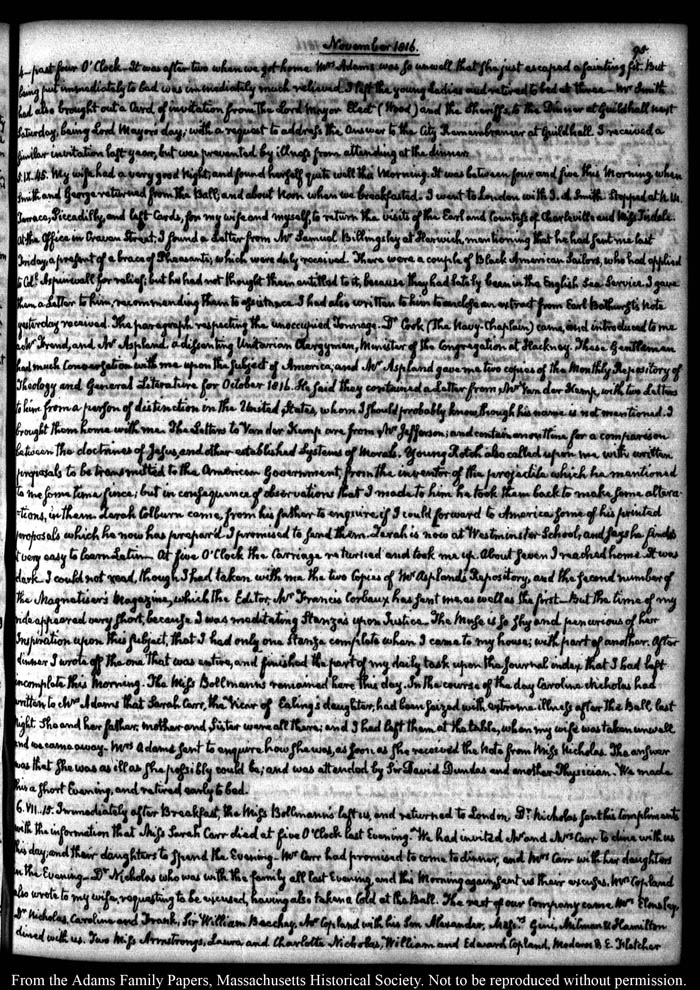 November 1816.
95
4– past four O'Clock– It was after two when we got home. Mrs Adams was so unwell that She just escaped a fainting fit. But
being put immediately to bed was immediately much relieved. I left the young Ladies and retired to bed at three– Mr Smith
had also brought out a Card of invitation from the Lord Mayor Elect (Wood) and the Sheriffs to the Dinner at Guildhall next
Saturday, being Lord Mayors day; with a request to address the answer to the City Remembrancer at Guildhall. I received a
similar invitation last year, but was prevented by illness from attending at the dinner.
5. IX. 45. My wife had a very good Night, and found herself quite well this Morning. It was between four and five this Morning, when
Smith and George returned from the Ball, and about Noon when we breakfasted. I went to London with J. A. Smith. Stopped at
Terrace, Piccadilly, and left Cards, for my wife and myself, to return the visits of the Earl and Countess of Charleville and Miss Tisdale.
At the Office in Craven Street, I found a Letter from Mr Samuel Billingsley at Harwich, mentioning that he had sent me last
Friday a present of a brace of Pheasants; which were duly received. There were a couple of Black American Sailors, who had applied
to Coll. Aspinwall for relief; but he had not thought them entitled to it, because they had lately been in the English Sea Service. I gave
them a Letter to him, recommending them to assistance. I had also written to him to enclose an extract from Earl Bathurst's Note
yesterday received. The paragraph respecting the unoccupied Tonnage. Dr Cook (The Navy-Chaplain) came, and introduced to me
a Mr Frend, and Mr Aspland, a dissenting Unitarian Clergyman, Minister of the Congregation at Hackney. These Gentlemen
had much Conversation with me upon the subject of America; and Mr Aspland gave me two copies of the Monthly Repository of
Theology and General Literature for October 1816. He said they contained a Letter from Mr Van der Kemp, with two Letters
to him from a person of distinction in the United States, whom I should probably know, though his name is not mentioned. I
brought them home with me. The Letters to Van der Kemp are from Mr Jefferson; and contain an outline for a comparison
between the doctrines of Jesus, and other established Systems of Morals. Young Rotch also called upon me with written
proposals to be transmitted to the American Government, from the inventor of the projectile which he mentioned
to me some time since; but in consequence of observations that I made to him he took them back to make some altera-
-tions, in them. Zerah Colburn came, from his father to enquire if I could forward to America some of his printed
proposals which he now has prepar'd. I promised to send them. Zerah is now at Westminster School, and says he finds
it very easy to learn Latin. At five O'Clock the Carriage returned and took me up. About seven I reached home. It was
dark. I could not read, though I had taken with me the two Copies of Mr Aspland's Repository, and the second number of
the Magnetiser's Magazine, which the Editor, Mr Francis Corbaux has sent me, as well as the first– But the time of my
ride appeared very short, because I was meditating Stanza's upon Justice. The Muse is so shy and penurious of her
Inspiration upon this subject, that I had only one Stanza complete when I came to my house; with part of another. After
dinner I wrote off the one that was entire, and finished the part of my daily task upon the Journal index that I had left
incomplete this Morning. The Miss Bollmann's remained here this day. In the course of the day Caroline Nicholas had
written to Mrs Adams that Sarah Carr, the Vicar of Ealing's daughter, had been seized with extreme illness after the Ball, last
night. She and her father, mother and Sister were all there; and I had left them at the table, when my wife was taken unwell
and we came away. Mrs Adams sent to enquire how she was, as soon as she received the Note from Miss Nicholas. The answer
was that She was as ill as She possibly could be; and was attended by Sir David Dundas and another Physician. We made
this a short Evening, and retired early to bed.
6. VII. 15. Immediately after Breakfast, the Miss Bollmann's left us, and returned to London. Dr Nicholas sent his Compliments
with the information that Miss Sarah Carr died at five O'Clock last Evening. We had invited Mr and Mrs Carr to dine with us
this day; and their daughters to spend the Evening– Mr Carr had promised to come to dinner, and Mrs Carr with her daughters
in the Evening– Dr Nicholas who was with the family all last Evening, and this Morning again, sent us their excuses. Mrs Copland
also wrote to my wife, requesting to be excused, having also taken a Cold at the Ball. The rest of our Company came Mrs Elmsley,
Dr Nicholas, Caroline and Frank, Sir William Beechey, Mr Copland with his Son Alexander, Messrs Gini, Milman & Hamilton
dined with us. Two Miss Armstrongs, Laura and Charlotte Nicholas, William and Edward Copland, Madame B. E. Fletcher
From the Adams Family Papers, Massachusetts Historical Society. Not to be reproduced without permission.